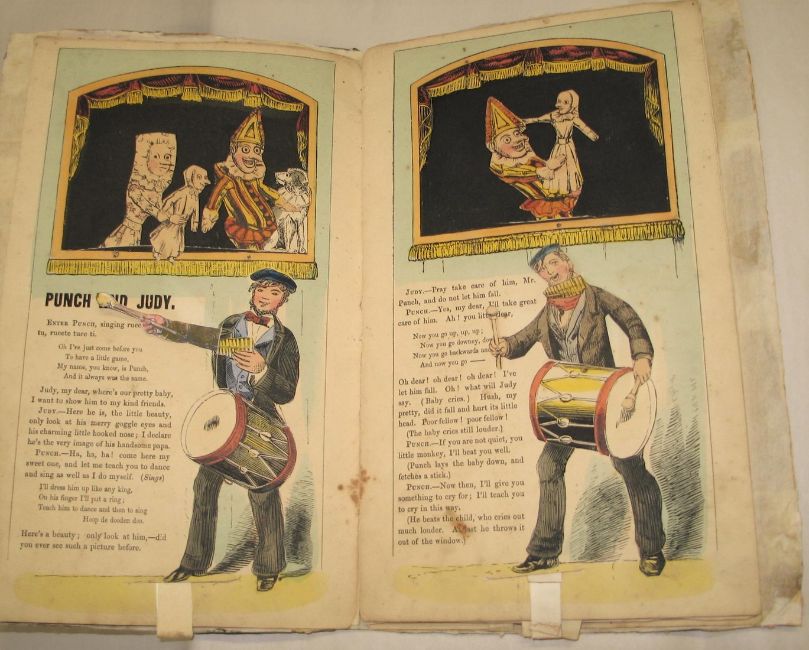 PUNCH AND JUDY.
ENTER PUNCH, singing rooe
tu, rueete tuee ti.
Oh I've just come before you
To have a little game,
My name, you know, is Punch,
And it always was the same.
Judy, my dear, where's our pretty baby,
I want to show him to my kind friends.
JUDY.—Here he is, the little beauty,
only look at his merry goggle eyes and
his charming little hooked nose; I declare
he's the very image of his handsome papa.
PUNCH.—Ha, ha, ha! come here my
sweet one, and let me teach you to dance
and sing as well as I do myself. (Sings)
I'll dress him up like any king,
On his finger I'll put a ring;
Teach him to dance and then to sing
Hoop de dooden doo.
Here's a beauty; only look at him,—did
you ever see such a picture before.
JUDY.—Pray take care of him, Mr.
Punch, and do not let him fall.
PUNCH.—Yes, my dear, I'll take great
care of him. Ah! you little dear,
Now you go up, up, up;
Now you go downey,
Now you go backwards and
And now you go ——
Oh dear! oh dear! oh dear! I've
let him fall. Oh! what will Judy
say. (Baby cries.) Hush, my
pretty, did it fall and hurt its little
head. Poor fellow! poor fellow!
(The baby cries still louder.)
PUNCH.—If you are not quiet, you
little monkey, I'll beat you well.
(Punch lays the baby down, and
fetches a stick.)
PUNCH.—Now then, I'll give you
something to cry for; I'll teach you
to cry in this way.
(He beats the child, who cries out
much louder. At last he throws it
out of the window.)